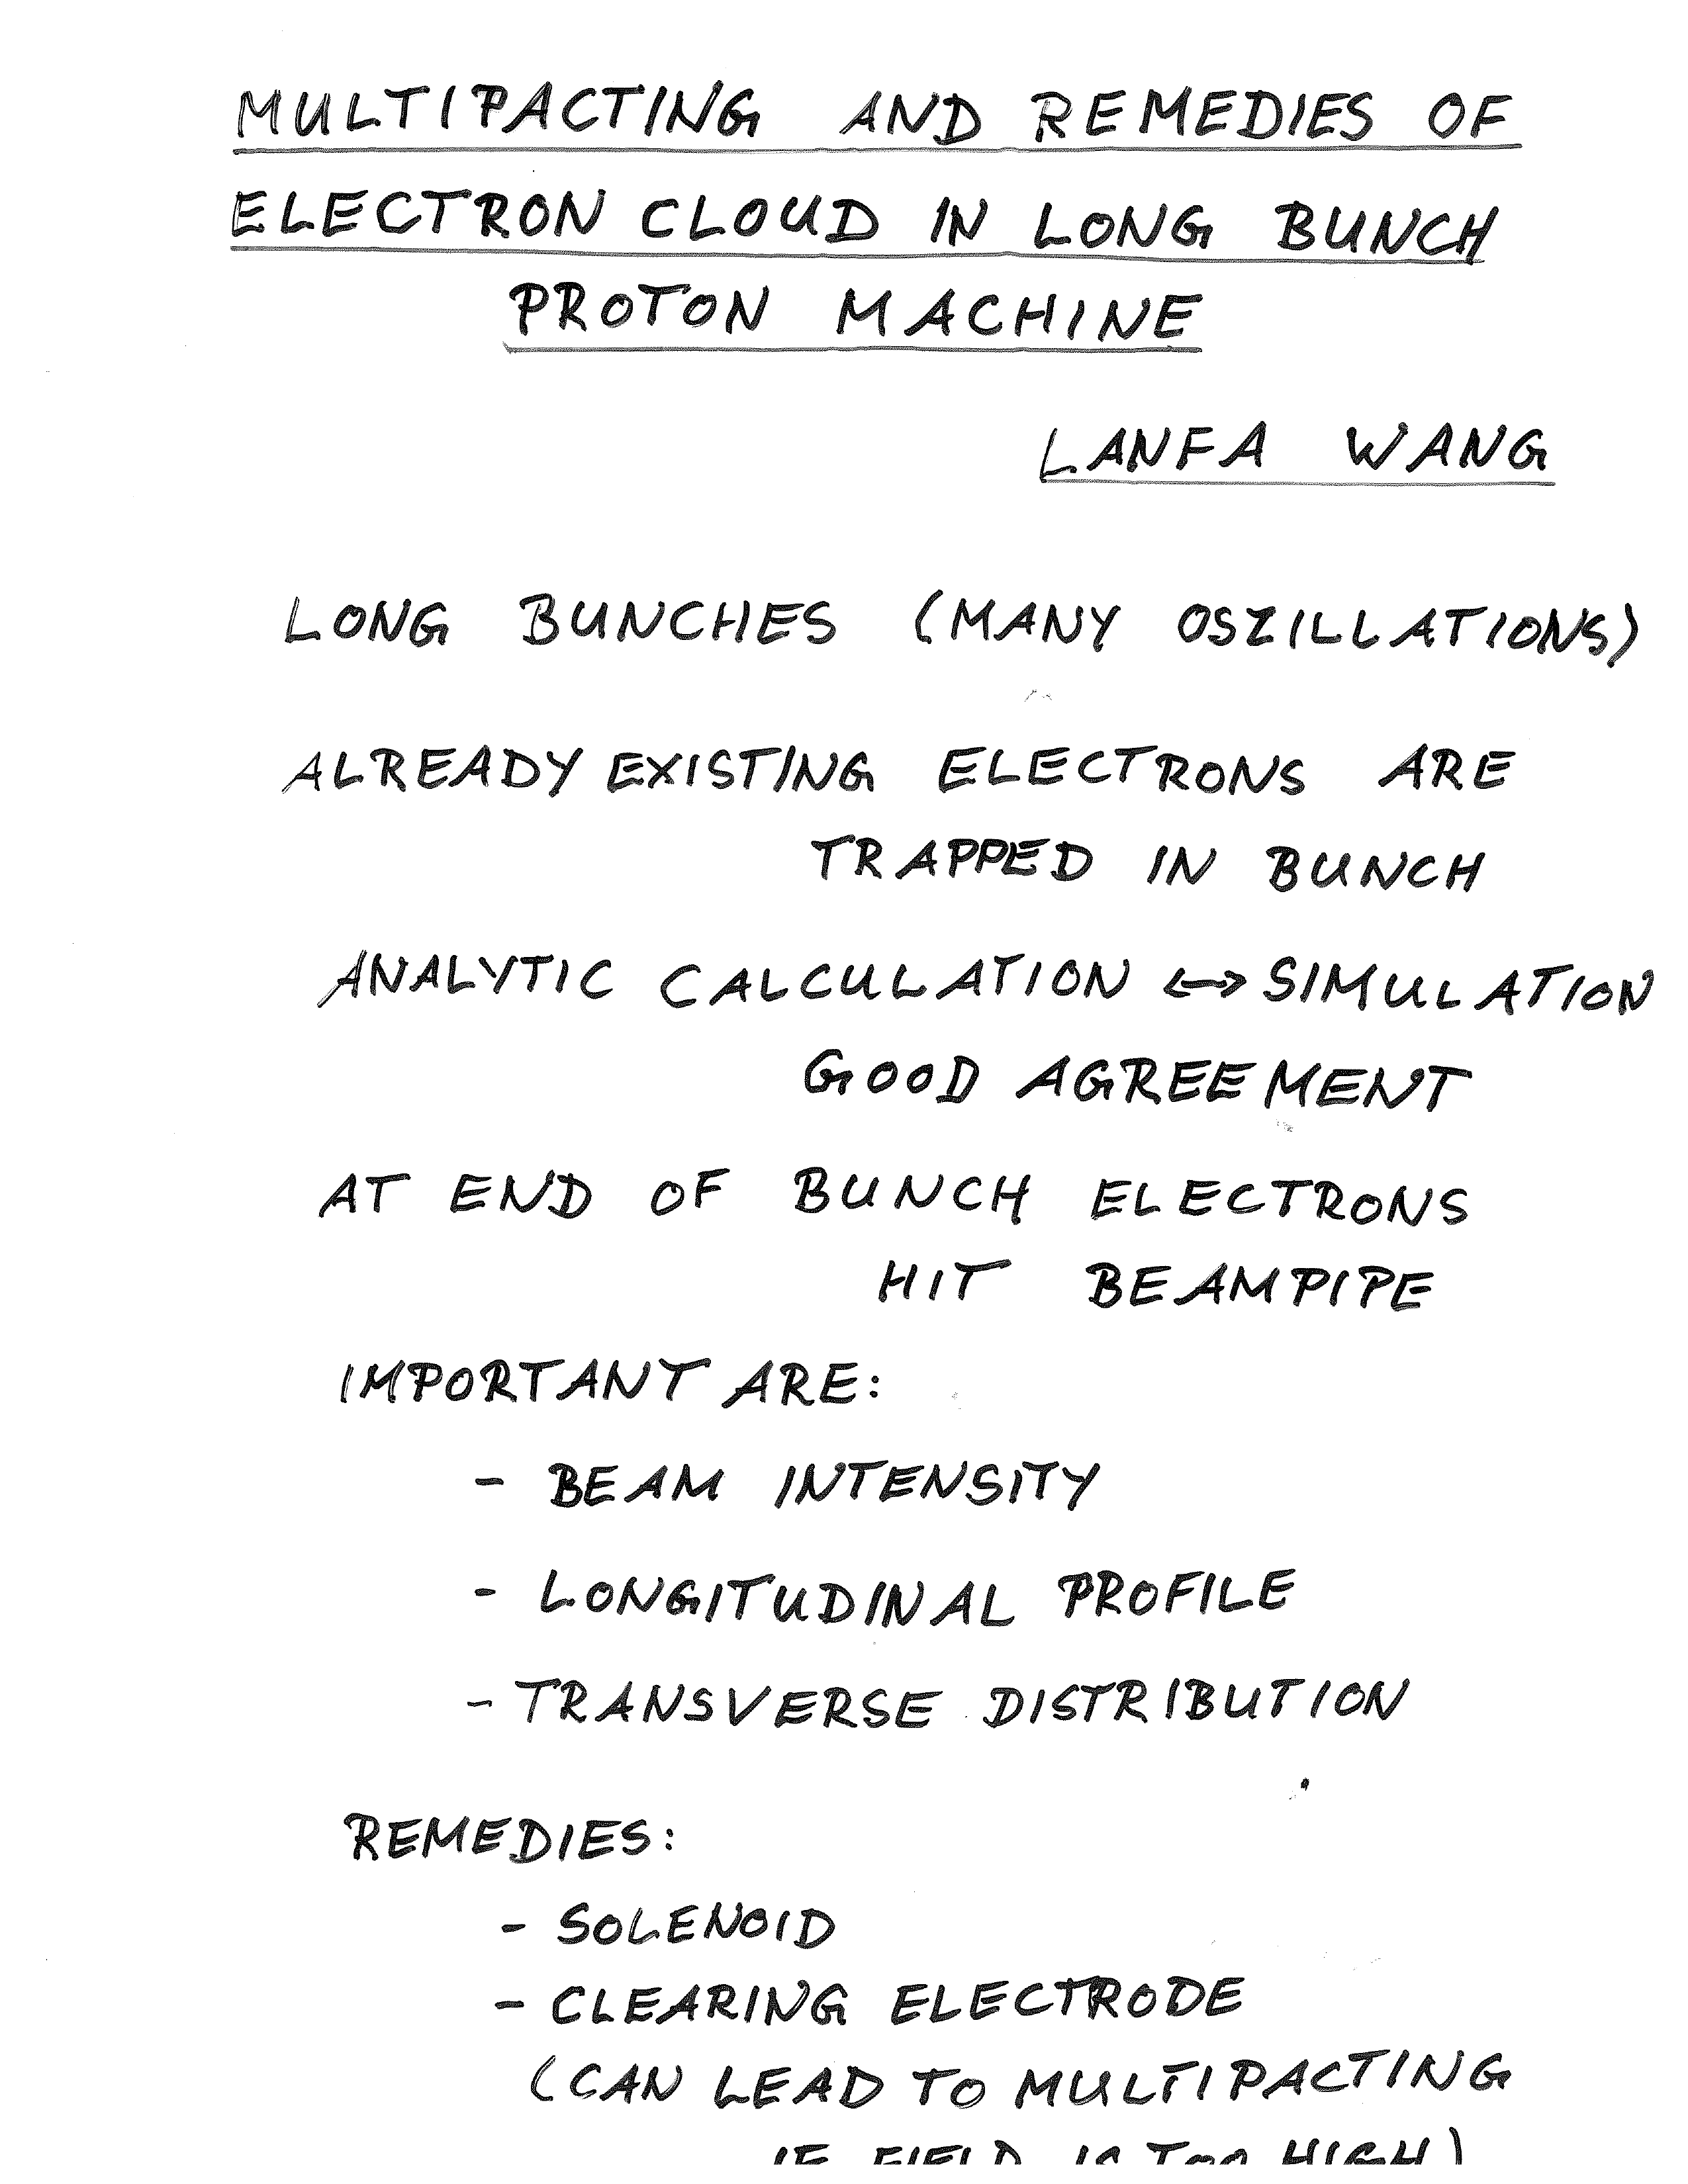 MULTIPACTING AND REMEDIES OF
ELECTRON CLOUD IN LONG BUNCH
PROTON MACHINE
LANFA WANG
LONG BUNCHES (MANY OSZILLATIONS)
ALREADY EXISTING ELECTRONS ARE
TRAPPED IN BUNCH
ANALYTIC CALCULATION ↔ SIMULATION
GOOD AGREEMENT
AT END OF BUNCH ELECTRONS
HIT BEAMPIPE
IMPORTANT ARE:
- BEAM INTENSITY
- LONGITUDINAL PROFILE
- TRANSVERSE DISTRIBUTION
REMEDIES:
- SOLENOID
- CLEARING ELECTRODE
(CAN LEAD TO MULTIPACTING
IF FIELD IS TOO HIGH)